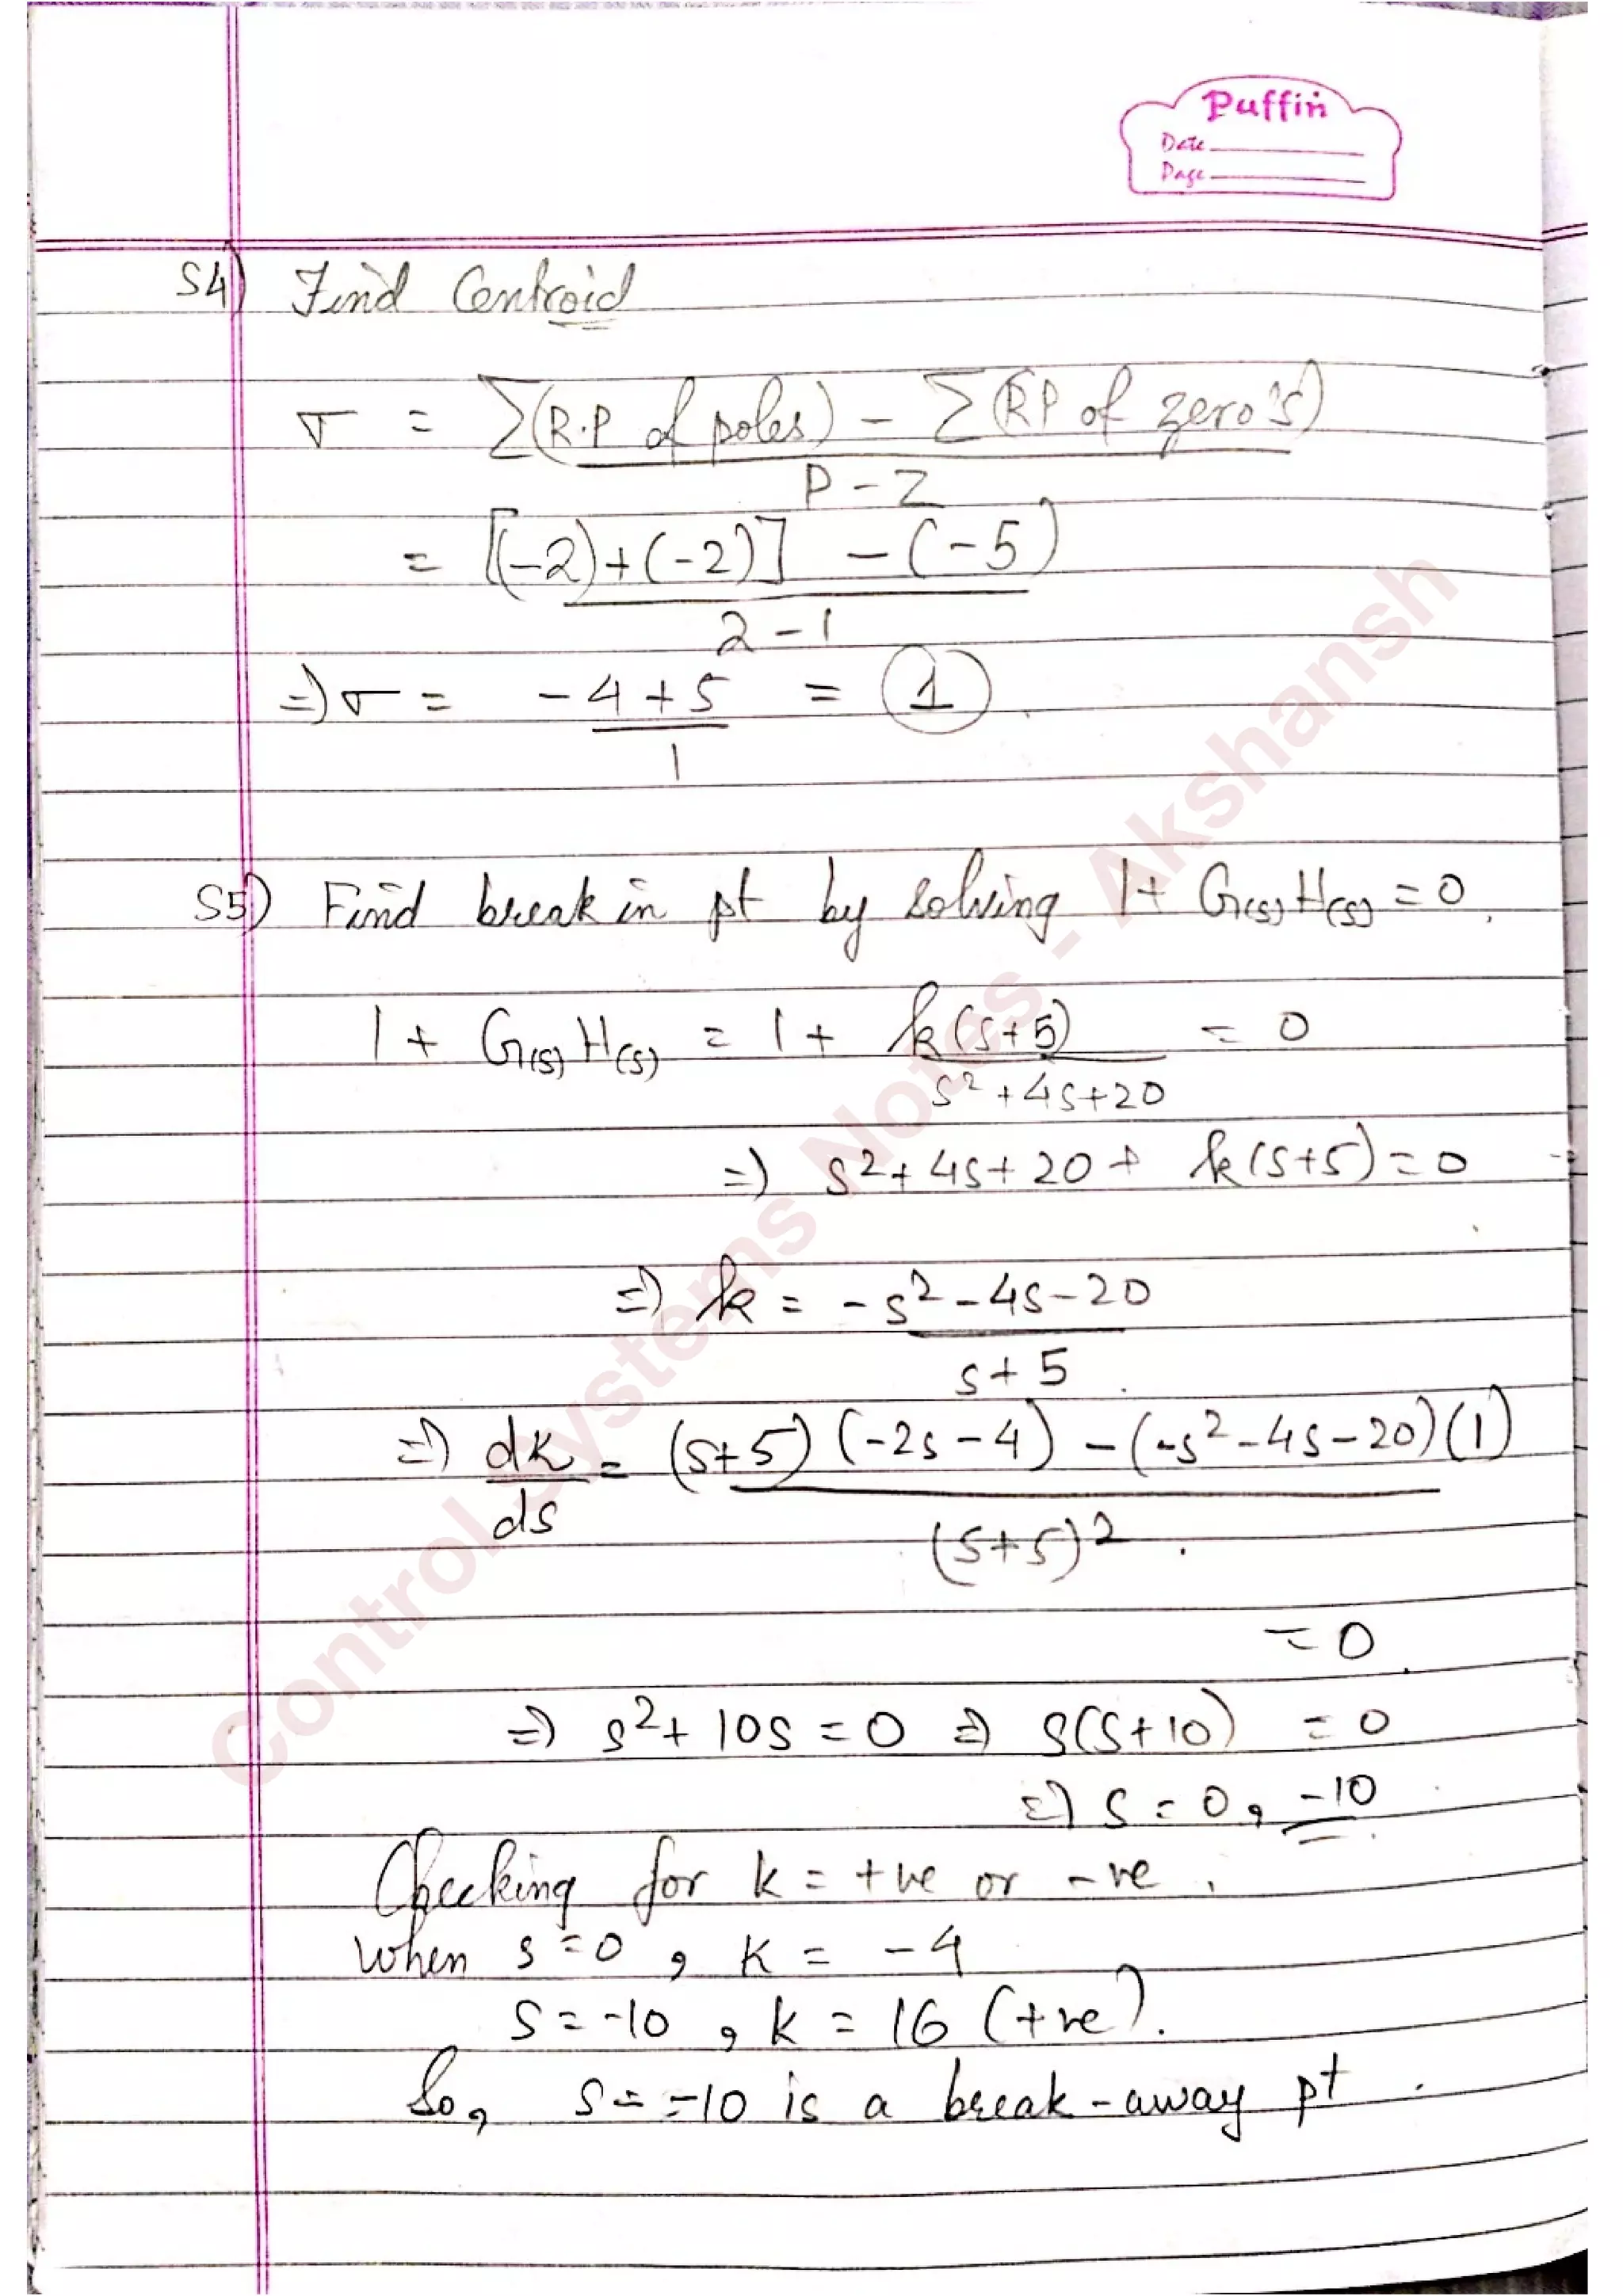 Puffin
Date
Page
S4) Find Centroid
σ = Σ(R.P of poles) - Σ(RP of zero's)
P - Z
= [(-2)+(-2)] - (-5)
2 - 1
⇒ σ = -4+5 = 1
1
S5) Find break in pt by solving 1+ G(s)H(s) = 0.
1 + G(s)H(s) = 1 + k(s+5) = 0
s²+4s+20
⇒ s²+4s+20 + k(s+5) = 0
⇒ k = -s²-4s-20
s+5
⇒ dk = (s+5)(-2s-4) - (-s²-4s-20)(1)
ds
(s+5)²
= 0
⇒ s²+10s = 0 ⇒ s(s+10) = 0
⇒ s = 0, -10
Checking for k = +ve or -ve.
when s=0, k = -4
s = -10, k = 16 (+ve).
So, s = -10 is a break-away pt.
Control Systems Notes - Akshansh